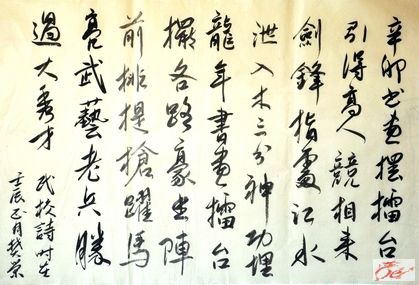 辛卯书画摆擂台
引得高人競相来
劍鋒指處江水
泄入木三分神功埋
龍年書画擂台
擺各路豪杰陣
前排提槍躍馬
亮武藝老兵勝
過大秀才
武校詩
壬辰正月